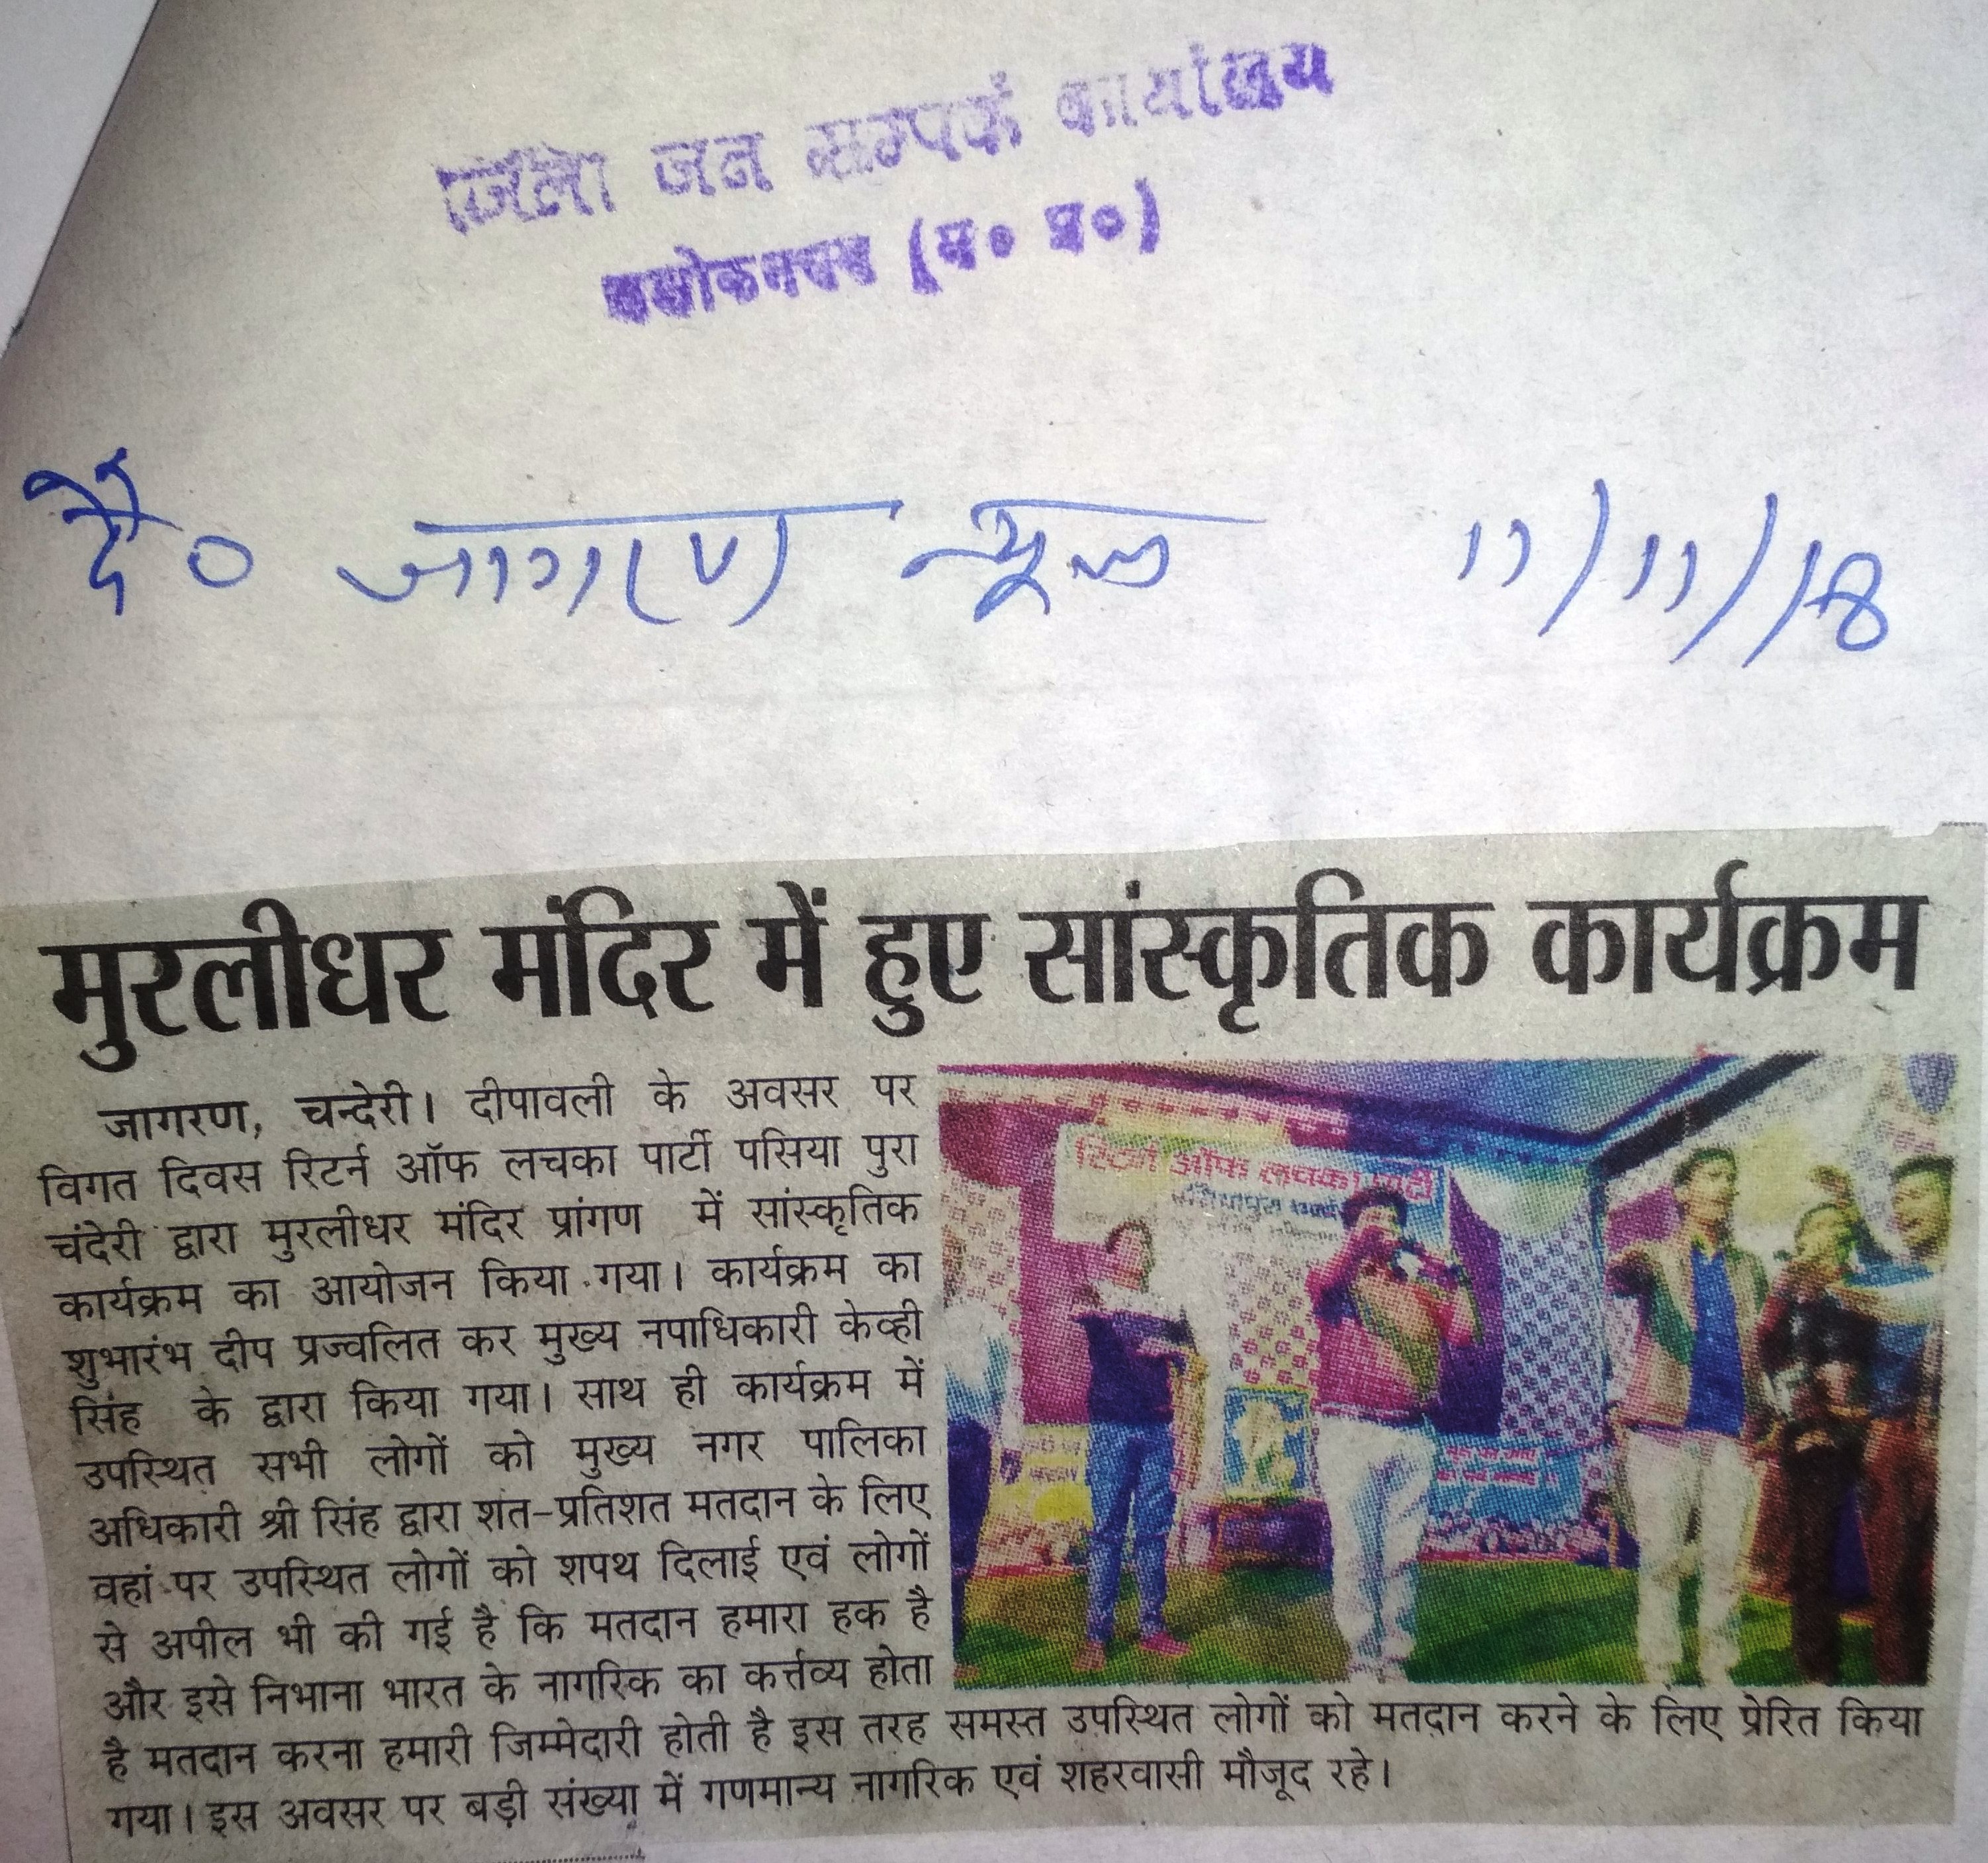 जिला जन सम्पर्क कार्यालय
अशोकनगर (म० प्र०)
दै० जागरण न्यूज 11/11/18
मुरलीधर मंदिर में हुए सांस्कृतिक कार्यक्रम
जागरण, चन्देरी। दीपावली के अवसर पर
विगत दिवस रिटर्न ऑफ लचका पार्टी पसिया पुरा
चंदेरी द्वारा मुरलीधर मंदिर प्रांगण में सांस्कृतिक
कार्यक्रम का आयोजन किया गया। कार्यक्रम का
शुभारंभ दीप प्रज्वलित कर मुख्य नपाधिकारी केव्ही
सिंह के द्वारा किया गया। साथ ही कार्यक्रम में
उपस्थित सभी लोगों को मुख्य नगर पालिका
अधिकारी श्री सिंह द्वारा शत-प्रतिशत मतदान के लिए
वहां पर उपस्थित लोगों को शपथ दिलाई एवं लोगों
से अपील भी की गई है कि मतदान हमारा हक है
और इसे निभाना भारत के नागरिक का कर्त्तव्य होता
है मतदान करना हमारी जिम्मेदारी होती है इस तरह समस्त उपस्थित लोगों को मतदान करने के लिए प्रेरित किया
गया। इस अवसर पर बड़ी संख्या में गणमान्य नागरिक एवं शहरवासी मौजूद रहे।
रिटर्न ऑफ लचका पार्टी